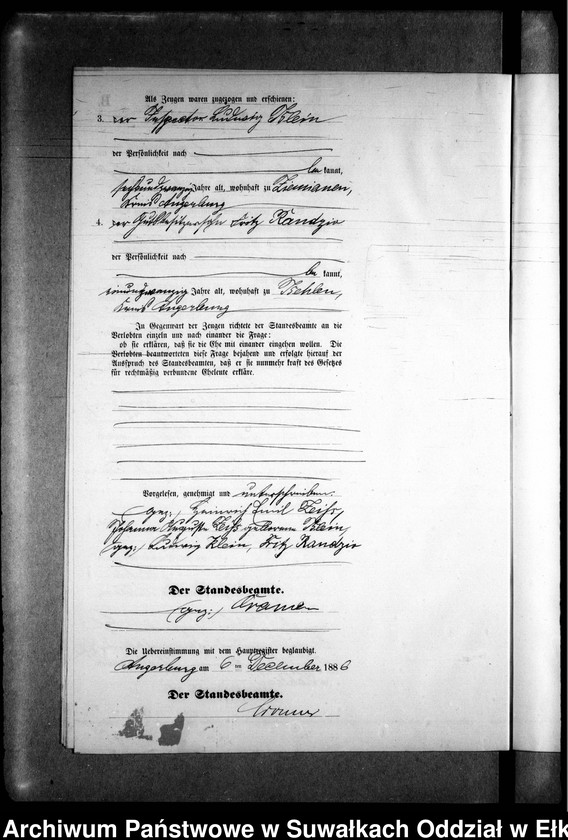 Als Zeugen waren zugezogen und erschienen:
3. der Inspector Ludwig Klein
der Persönlichkeit nach
be kannt,
sechsundzwanzig Jahre alt, wohnhaft zu Ziemianen,
Kreis Angerburg
4. der Gutsbesitzersohn Fritz Randzio
der Persönlichkeit nach
be kannt,
einundzwanzig Jahre alt, wohnhaft zu
Kreis Angerburg
In Gegenwart der Zeugen richtete der Standesbeamte an die
Verlobten einzeln und nach einander die Frage:
ob sie erklären, daß sie die Ehe mit einander eingehen wollen. Die
Verlobten beantworteten diese Frage bejahend und erfolgte hierauf der
Ausspruch des Standesbeamten, daß er sie nunmehr kraft des Gesetzes
für rechtmäßig verbundene Eheleute erkläre.
Vorgelesen, genehmigt und unterschrieben.
(gez:) Heinrich Emil Zeiss,
Johanna Auguste Zeiss geborene Klein,
(gez:) Ludwig Klein, Fritz Randzio
Der Standesbeamte.
(gez:) Cramer
Die Uebereinstimmung mit dem Hauptregister beglaubigt.
Angerburg am 6 ten December 1886
Der Standesbeamte.
Cramer
Archiwum Państwowe w Suwałkach Oddział w Ełk